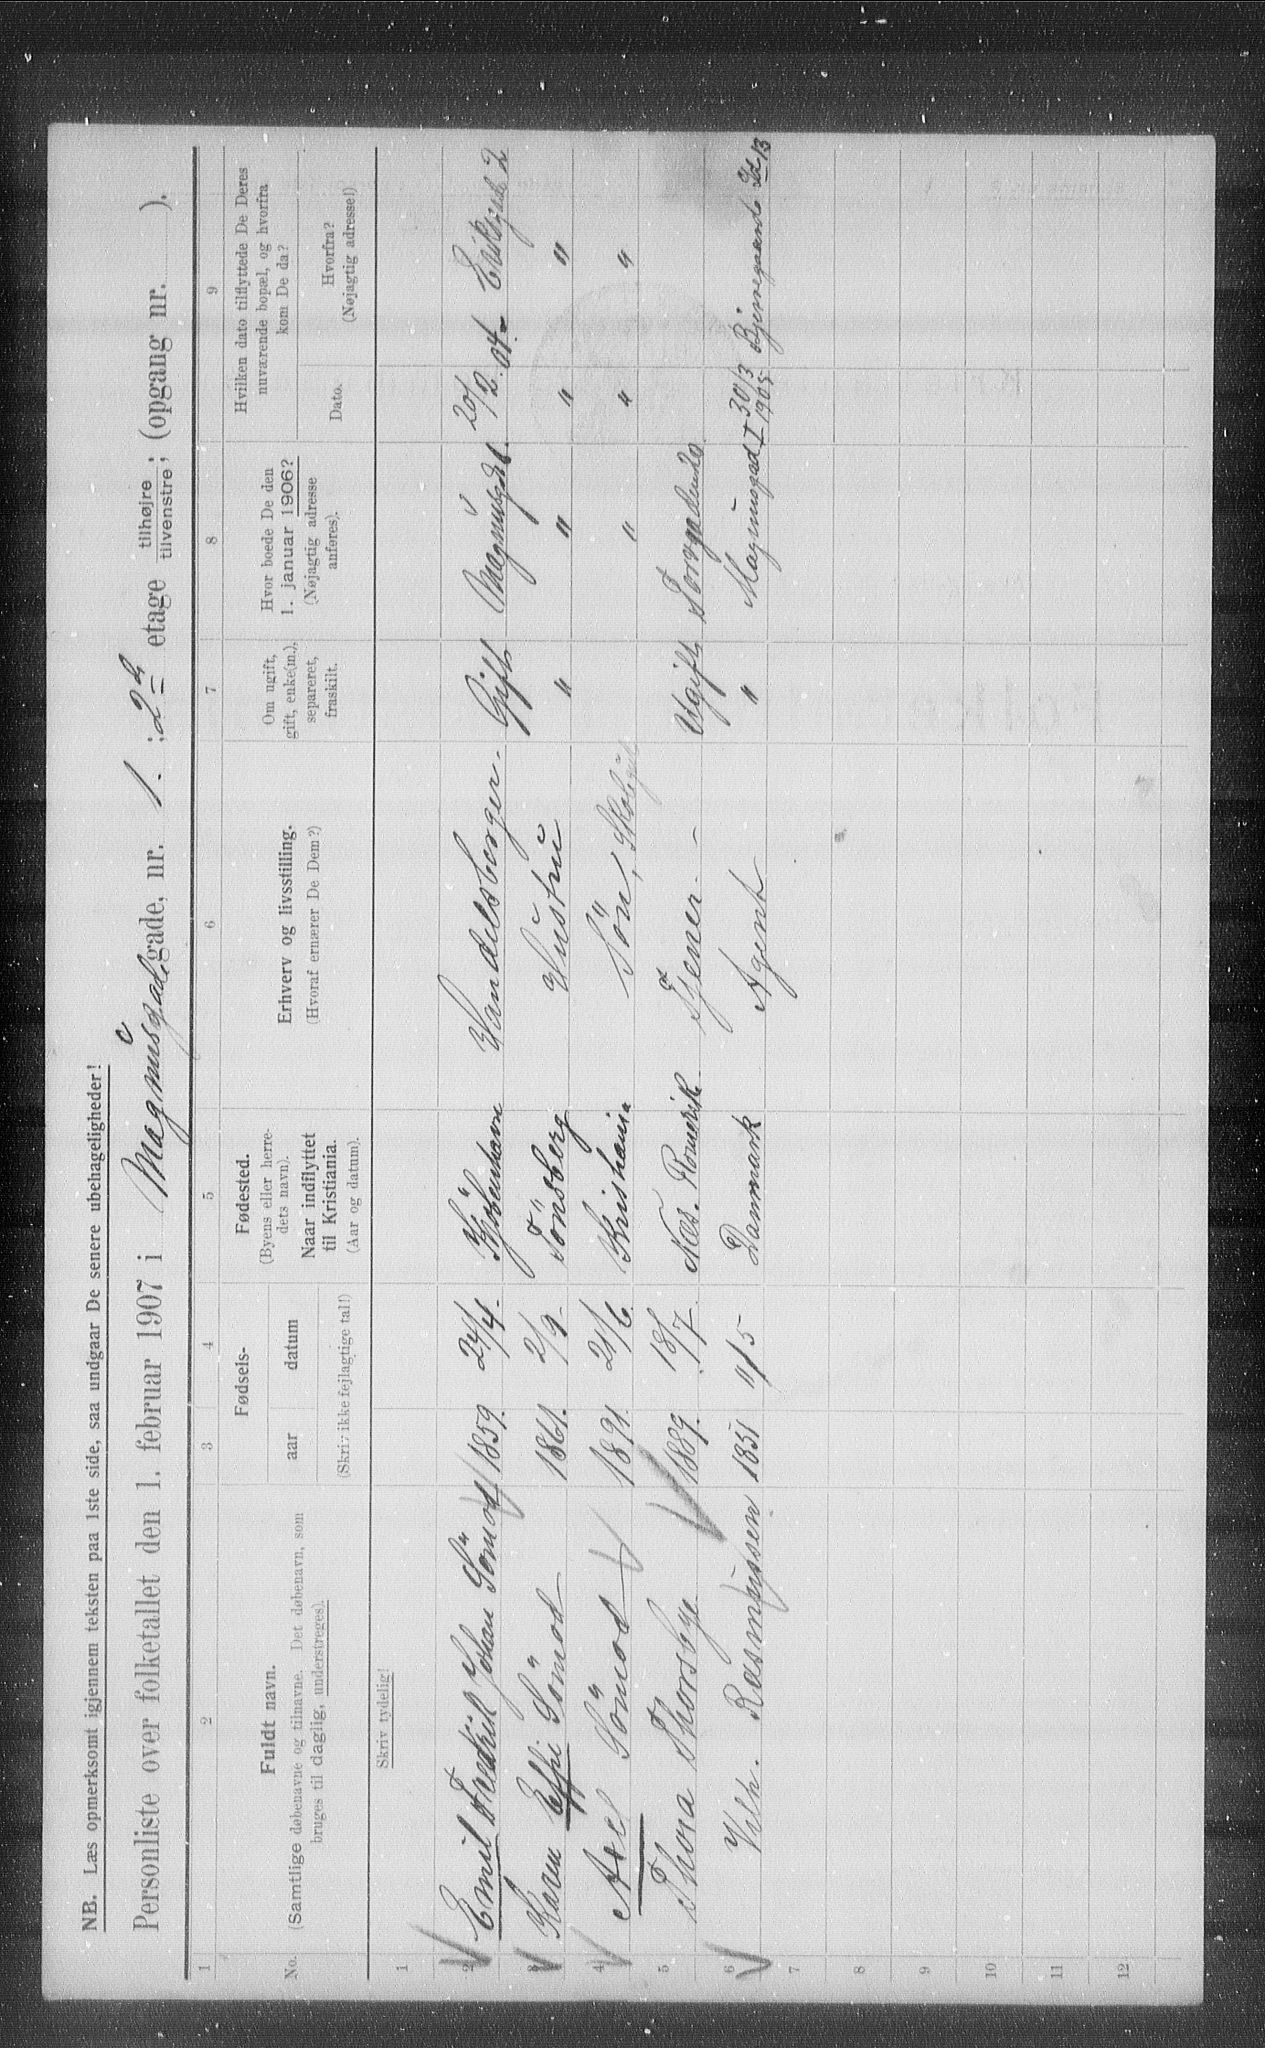 NB. Læs opmerksomt igjennem teksten paa 1ste side, saa undgaar De senere ubehageligheder!
Personliste over folketallet den 1. februar 1907 i Magnusgad. gade, nr. 1. ; 2 etage tilhøjre / tilvenstre; (opgang nr. ).
1 2 3 4 5 6 7 8 9
No. Fuldt navn. (Samtlige døbenavne og tilnavne. Det døbenavn, som bruges til daglig, understreges).
Fødsels- aar datum (Skriv ikke fejlagtige tal!)
Fødested. (Byens eller herredets navn). Naar indflyttet til Kristiania. (Aar og datum).
Erhverv og livsstilling. (Hvoraf ernærer De Dem?)
Om ugift, gift, enke(m.), separeret, fraskilt.
Hvor boede De den 1. januar 1906? (Nøjagtig adresse anføres).
Hvilken dato tilflyttede De Deres nuværende bopæl, og hvorfra kom De da?
Dato. Hvorfra? (Nøjagtig adresse!)
Skriv tydelig!
1
2 Emil Fredrik Johan Sömod 1859. 24/4. Kjöbenhavn Handelsborger. Gift Magnusgd 1. 20/2. 04. 2
3 Karen Effi Sömod 1861. 2/9. Tönsberg Hustru " " " "
4 Axel Sömod 1891. 21/6. Kristiania Sön, " " "
5 Thora Thorsbye 1889. 18/7. Næs. Romerik Tjener - Ugift Torvgaden 20
6 Vilh. Rasmussen 1851 11/5 Danmark Agent " Magnusgad 1 30/3 1905 13
7
8
9
10
11
12